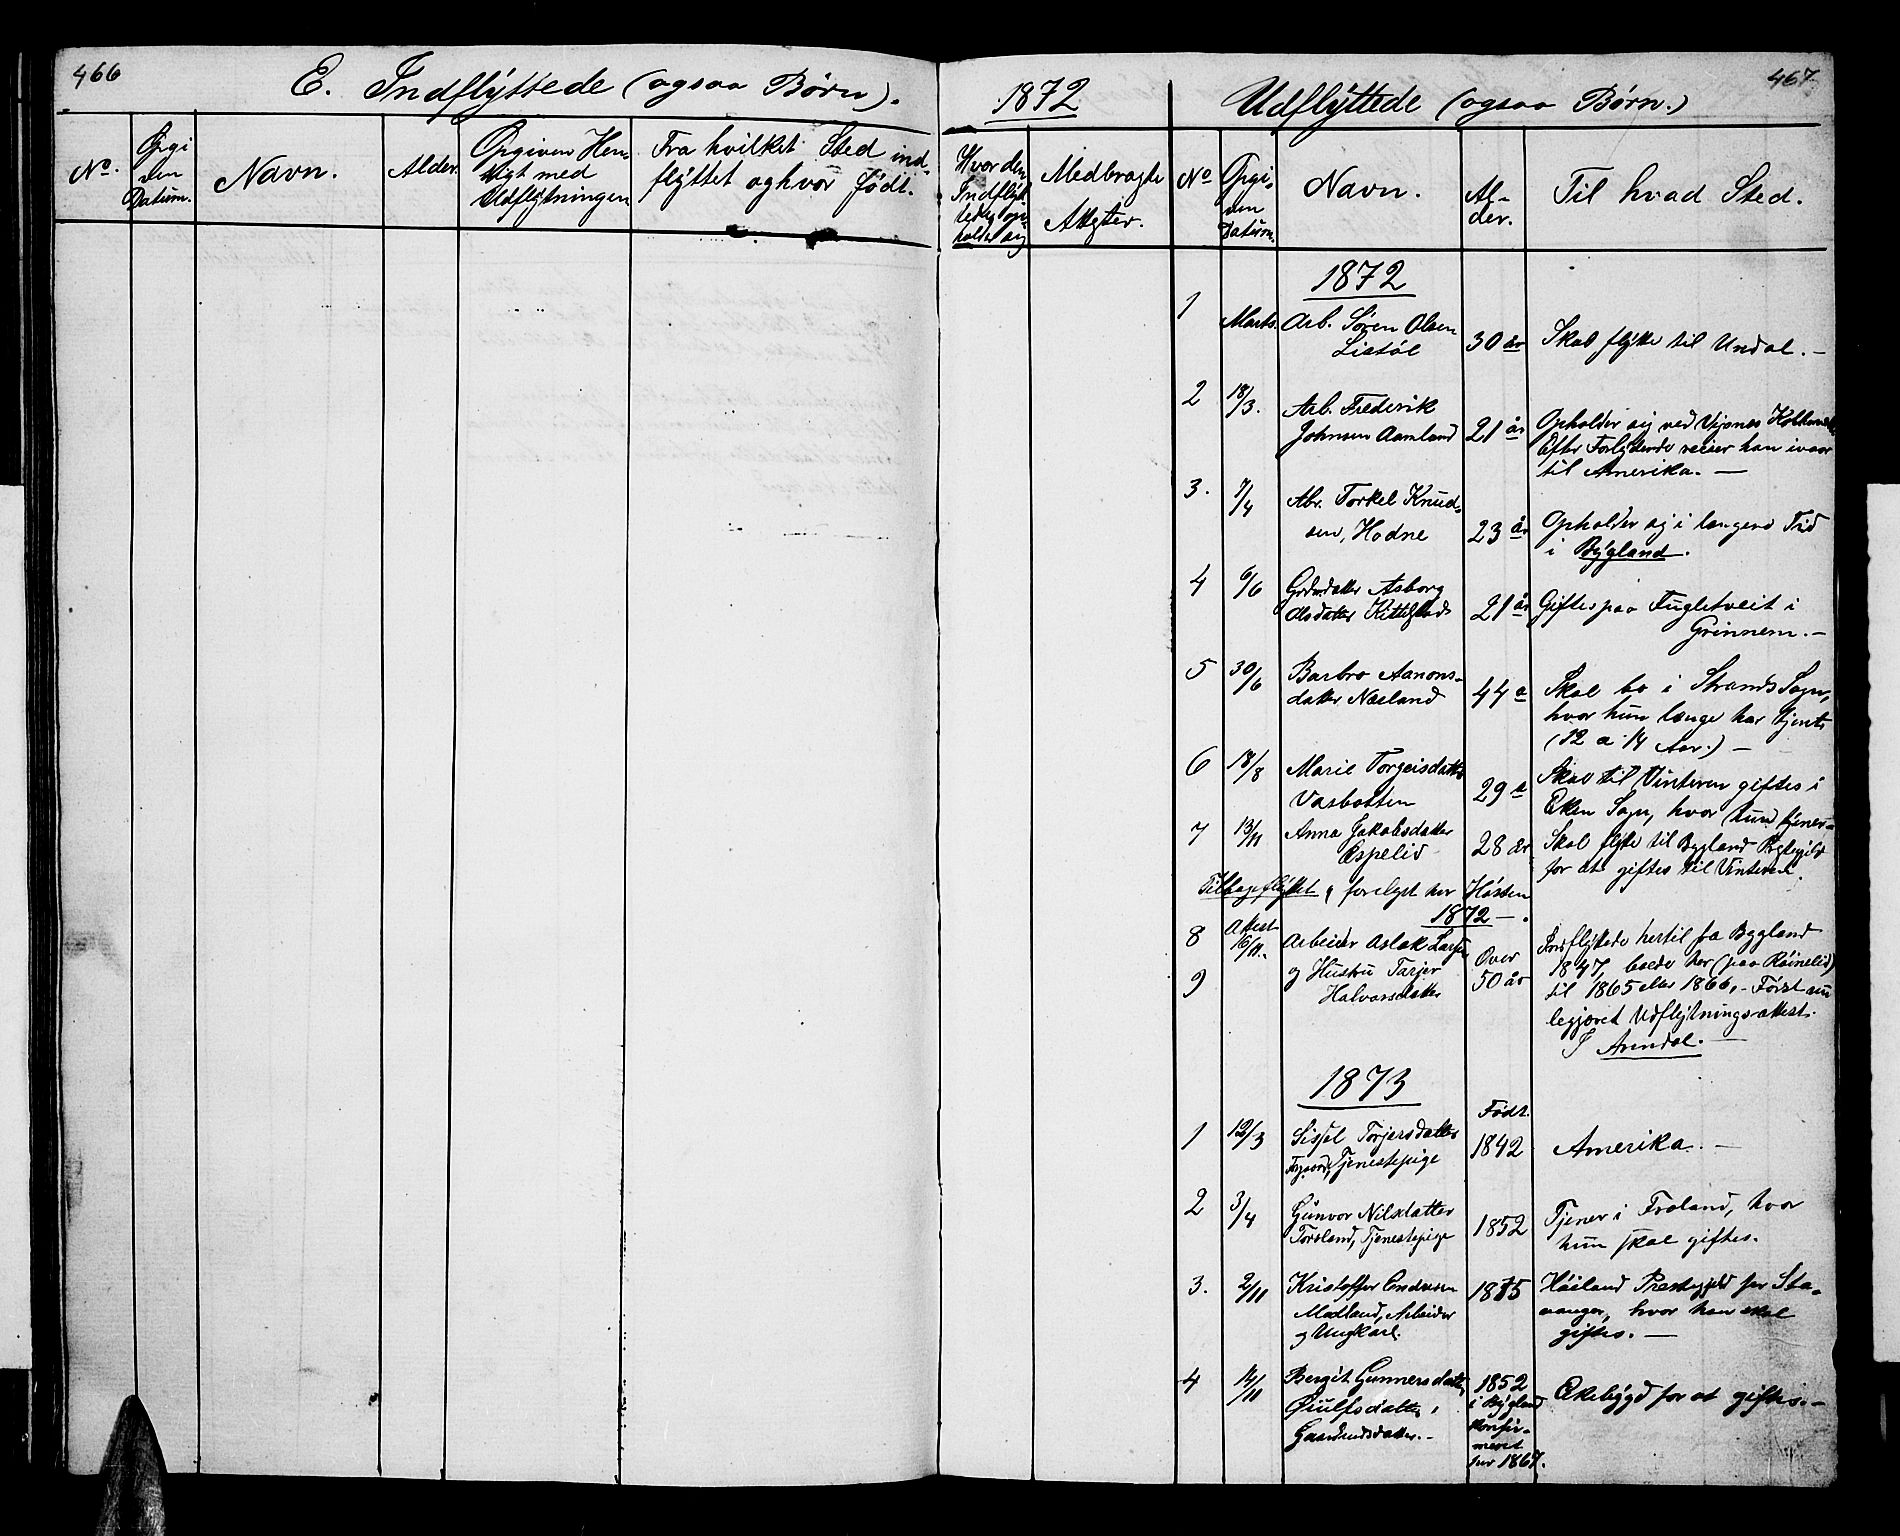 466
E. Indflyttede (ogsaa Børn).
No.
Opgi
ven
Datum.
Navn.
Alder.
Opgiven Hen-
sigt med
Udflytningen
Fra hvilket Sted ind-
flyttet og hvor født.
1872
Hvor den
Indflyt-
tede op-
holder sig
Medbragte
Attester.
467.
Udflyttede (ogsaa Børn.)
No
Opgi-
ven
Datum.
Navn.
Al-
der.
Til hvad Sted.
1872
1 Marts. Arb. Søren Olsen
Listøl 30 år Skal flytte til Undal. —
2 18/3. Arb. Frederik
Johnsen Aamland 21 år Opholder sig ved Vijsnes
Efter Forlydende reiser han ivaar
til Amerika. —
3. 7/4 Abr. Torkel Knud-
sen, Hodne 23 år Opholder sig i længere Tid
i Bygland.
4 6/6 Grdmdatter Asborg
Olsdatter 21 år Giftes paa Fugletveit i
Grinnem. —
5 30/6 Barbro Aanons-
datter Næsland 44 a Skal bo i Strands Sogn,
hvor hun længe har tjent
(12 a 14 Aar.) —
6 18/8 Marie Torgeisdatter
Vasbotten 29 a Skal til Vinteren giftes i
Eken Sogn, hvor hun tjener
7 13/11 Anna Jakobsdatter
Espelid 28 år Skal flytte til Bygland Prgjeld
for at giftes til Vinteren.
Tilbageflyttet & forelyst her Høsten
1872 —.
8 Attest
16/11. Arbeider Aslak Larsen
9 og Hustru Tarjer
Halvorsdatter Over
50 år
Indflyttede hertil fra Bygland
1847, boede her (paa Röinelid)
til 1865 eller 1866, - Först nu
begjæret Udflytnings-attest.
I Arendal. —
1873
Födt.
1 12/3 Sissel Torjersdatter
Tjenestepige 1842 Amerika. —
2 3/4 Gunvor Nilsdatter
Torsland, Tjenestepige 1852 Tjener i Froland, hvor
hun skal giftes.
3. 2/11 Kristoffer Endresen
Modland, Arbeider
og Ungkarl. 1875 Høiland Prestegjeld for Sta-
vanger, hvor han skal
giftes. —
4 14/11 Bergit Gunnersdatter,
Øiulfsdatter,
1852
i Bygland
Konfir-
meret
her 1867.
Ekebygd for at giftes. —